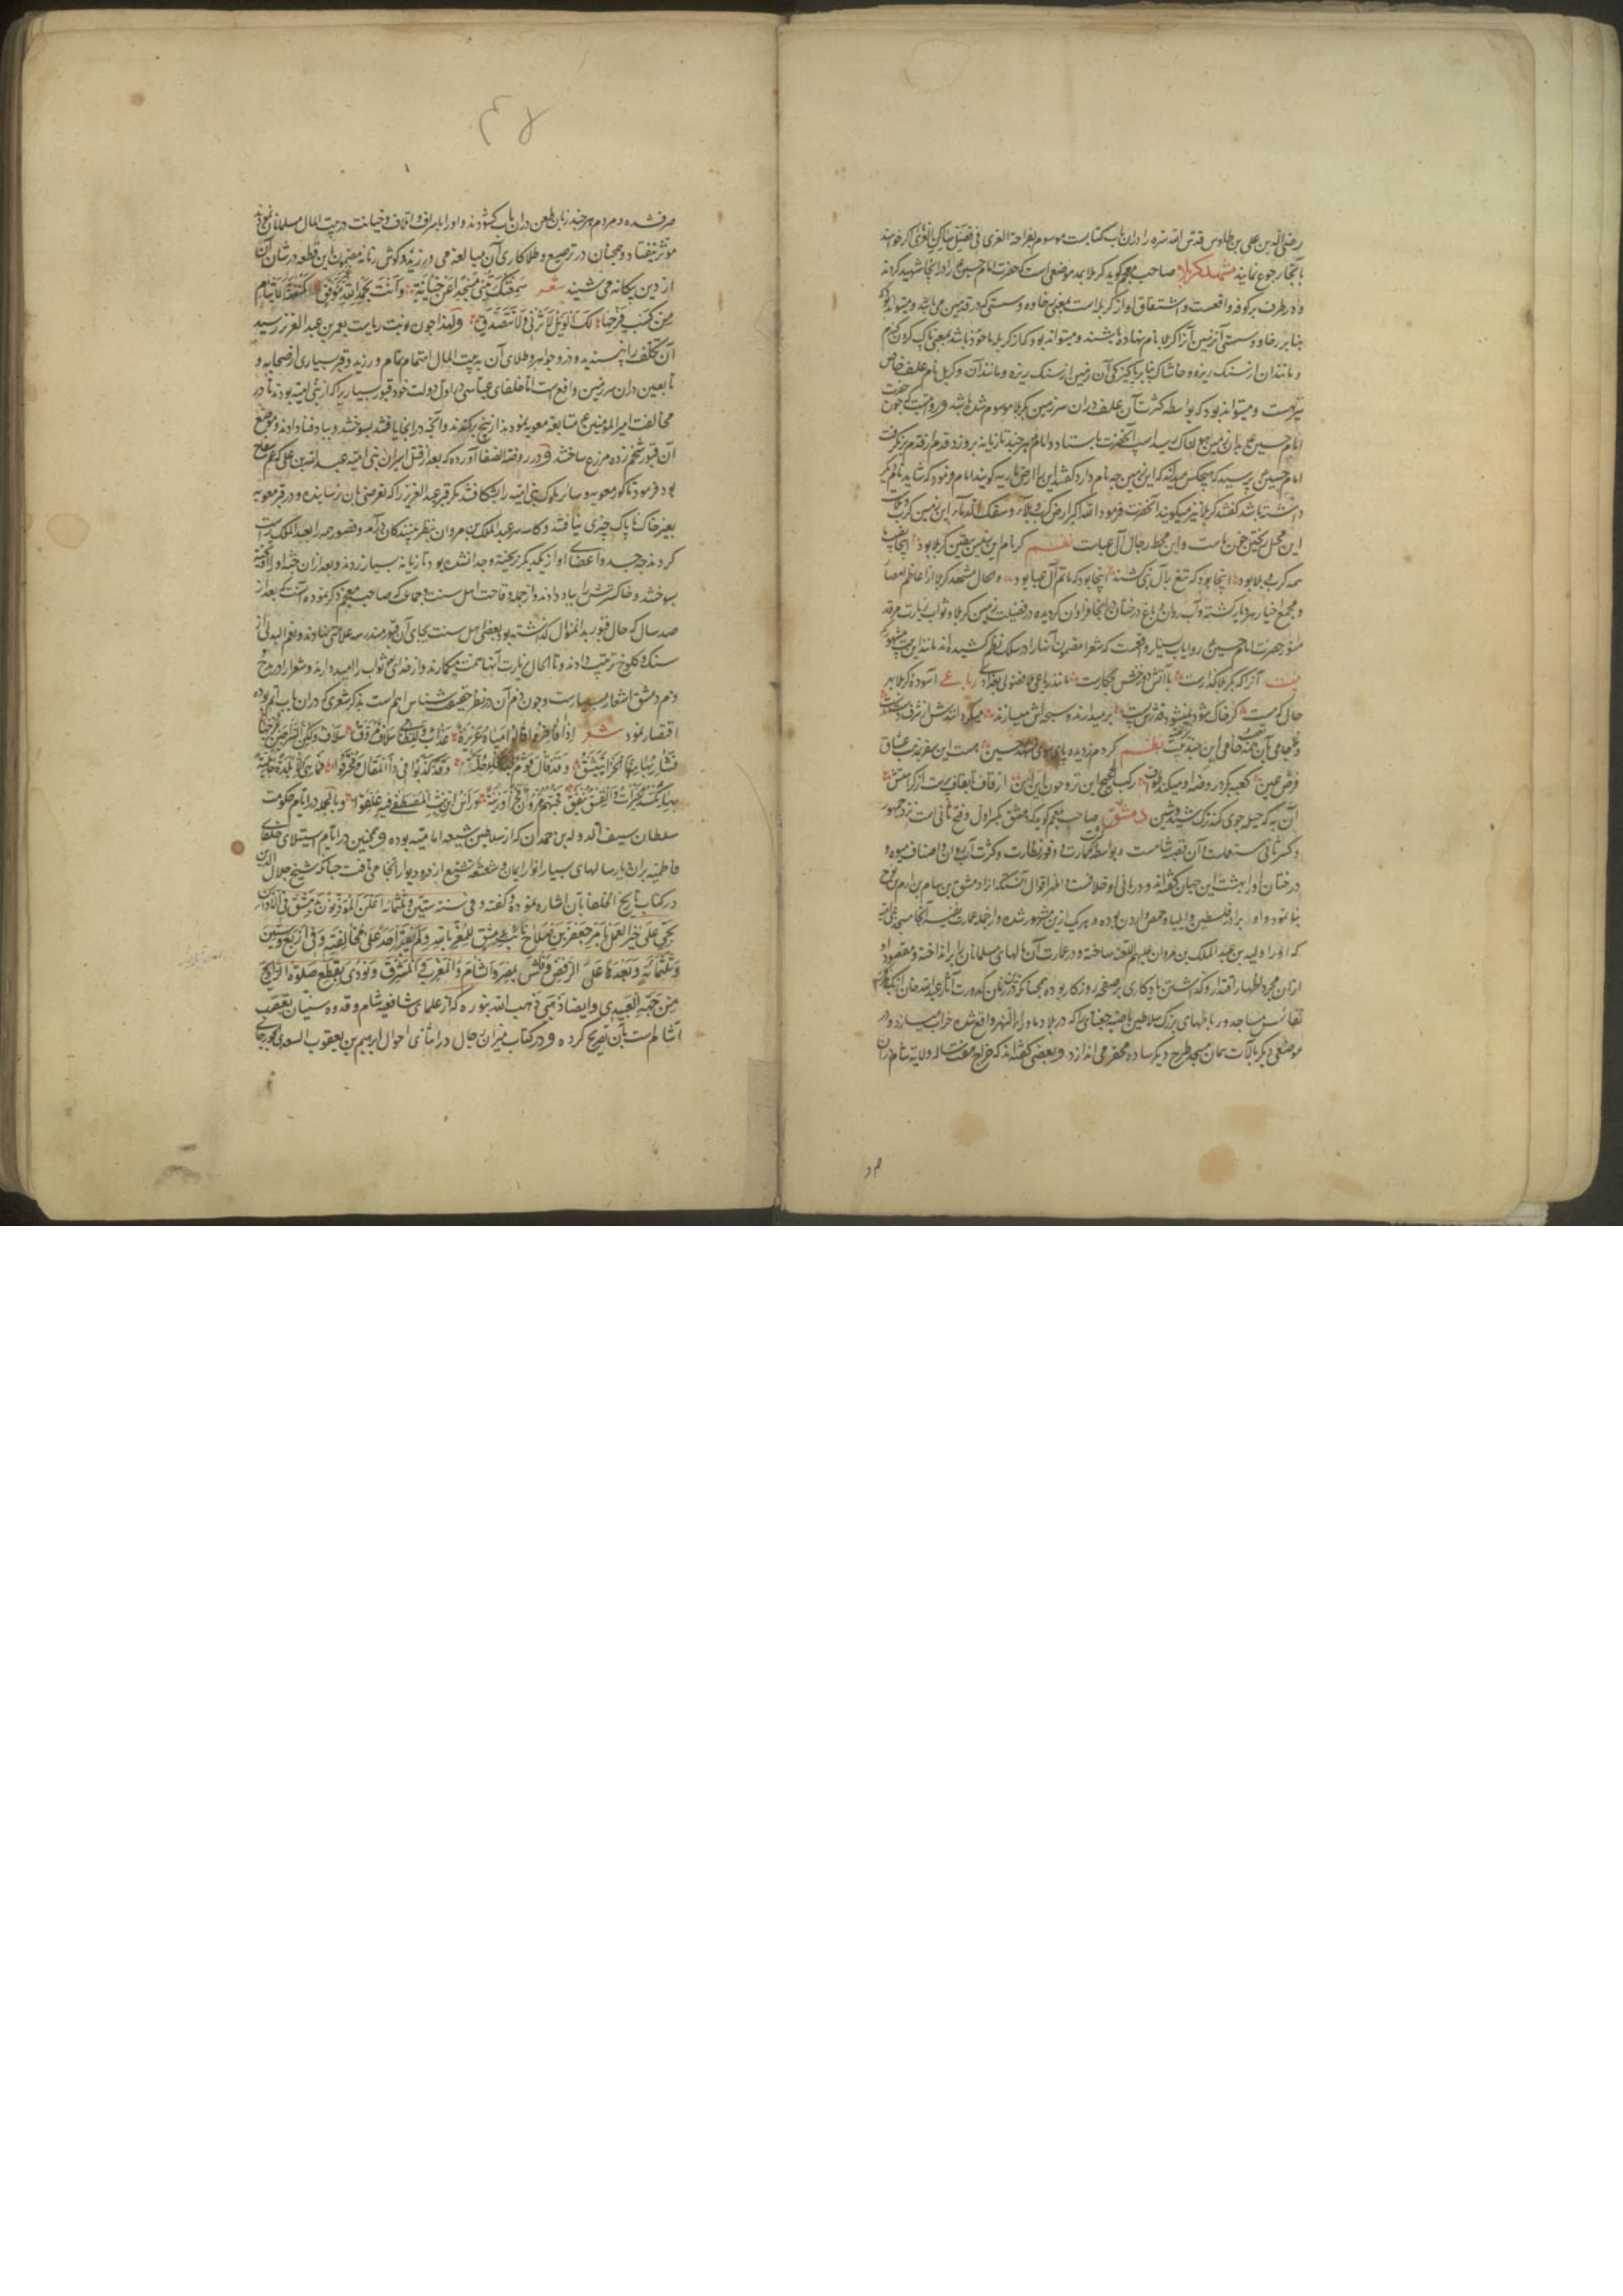 رضی الدین علی بن طاوس قدس الله سره را در ان باب کتابیست موسوم بفرحة الغری فی فضیلة ساکن الغری اگر خواهند
بانجا رجوع نمایند مشهد کربلا صاحب معجم گوید کربلا بمد موضعی است که حضرت امام حسین ع را در انجا شهید کردند
و در طرف بر کوفه واقعست و اشتقاق او از کربله است بمعنی رخاوه و سستی که در قدمین می باشد و میتواند بود که
بنا بر رخاوه و سستی آن زمین آنرا کربلا نام نهاده باشند و میتواند بود که از کربله ماخوذ باشد بمعنی پاک کردن گندم
و مانند ان از سنک ریزه و خاشاک بنا بر پاکیزکی آن زمین از سنک ریزه و مانند آن و کربل نام علف خاص
نیز هست و میتواند بود که بواسطه کثرت آن علف در ان سرزمین بکربلا موسوم شده باشد و روایتست که چون حضرت
امام حسین ع به ان زمین رسید اسپ آنحضرت باستاد و امام هر چند تازیانه بر وزد قدم از قدم بر نکرفت
امام حسین ع پرسید که هیچکس میداند که این زمین چه نام دارد گفتند این را ارض ماریه گویند امام فرمود که شاید نام دیگر
داشته باشد گفتند کربلا نیز میگویند آنحضرت فرمود الله اکبر ارض کرب و بلاء و سفک الدماء این زمین کرب و بلاست
این محل ریختن خون ماست و این محط رجال آل عباست نظم کر نام این زمین بیقین کربلا بود اینجا نصیب
همه کرب و بلا بود اینجا بود که تیغ بر آل نبی کشند اینجا بود که ماتم آل عبا بود و الحال مشهد کربلا از اعاظم امصار
و مجمع اخیار هر دیار کشته و آب روان و باغ درختان در انجا فراوان کردیده در فضیلت زمین کربلا و ثواب زیارت مرقد
منور حضرت امام حسین ع روایات بسیار واقعست که شعرا مضمون آنها را در سلک نظم کشیده اند مانند این بیت مشهور که
بیت آنرا که بکربلا گذارست با آتش دوزخش چکارست مانند رباعی ملا فضولی بغدادی رباعی آسوده کربلا بهر
حال که هست کر خاک شود نمیشود قدرش پست بر میدارند و سبحه اش میسازند میگردانندش از شرف دست بدست
و ملا جامی این چند بیت گفته نظم کردم ز دیده پای سوی مشهد حسین هست این سفر بمذهب عشاق
فرض عین کعبه بکرد روضه او میکند طواف رکب الحجیج این تروحون این این از قاف تا بقاف پرست از کرامتش
آن به که حیله جوی کند ترک شید و شین دمشق صاحب معجم کوید که دمشق بکسر اول و فتح ثانی است نزد جمهور
و کسر ثانی مستعملست و آن قصبه شامست و بواسطه کثرت عمارت و وفور نظارت و کثرت آب روان و اصناف میوه و
درختان او را بهشت این جهان گفته اند و در بانی او خلافست و اظهر اقوال آنست که از ادمشق بن سام بن ارم بن نوح
بنا نمود و او برادر فلسطین و ایلیا و حمص و اردن بوده و هر یک ازین مشهور شده و از جمله عمارت نفیسه آنجا مسجد جامع است
که او را ولید بن عبد الملک بن مروان علیهم اللعنه ساخته و در عمارت آن مالهای مسلمانان را برانداخته و مقصود او
ازان مجرد اظهار اقتدار و گذاشتن یادکاری بر صفحه روزکار بوده همچنانکه در زمان کدورت آثار عبد الله خان ازبک
نفائس مساجد و رباطهای بزرک سلاطین ماضیه چغتای را که در بلاد ماوراء النهر واقع شده خراب میسازد و در
موضعی دیگر بآلات همان مسجد طرح دیگر ساده محقر می اندازد و بعضی گفته اند که خراج هفت ساله ولایت شام در ان
صرف شده و مردم هر چند زبان طعن در ان باب کشودند و او را باسراف و اتلاف و خیانت در بیت المال مسلمانان نمودند
موثر نیفتاد و همچنان در ترصیع و طلا کاری آن مبالغه می ورزید و گوش زنانه مضمون این قطعه در شان آن
از دین بیکانه می شنید شعر سمعتک تبنی مسجدا عن خیانة و انت بحمد الله غیر موفق کمطعمة الایتام
من کسب فرجها لک الویل لا تزنی و لا تتصدقی و لهذا چون نوبت ریاست بعمر بن عبد العزیز رسید
آن تکلف را نپسندید و در و جواهر و طلای آن به بیت المال اهتمام تمام ورزید و قبر بسیاری از صحابه و
تابعین در ان سرزمین واقع است اما خلفای عباسی در اول دولت خود قبور بسیاری را که از بنی امیه بودند یا در
مخالفت امیر المؤمنین ع متابعه معویه نمودند از بیخ برکندند و آنچه در انجا یافتند بسوختند و بباد فنا دادند و موضع
آن قبور شخم زده مزرع ساختند و در روضة الصفا آورده که بعد از قتل امیران بنی امیه عبد الله بن علی که عم سفاح
بود فرمود تا گور معویه و سائر ملوک بنی امیه را بشکافتند مگر قبر عبد العزیز را که تعرضی بان نرسانیدند و در قبر معویه
بغیر خاک ناپاک چیزی نیافتند و کاسه سر عبد الملک بن مروان بنظر بینندکان در آمد و قصور جسد عبد الملک راست
کردند چه جسد و اعضای او از یکدیگر نریخته و جدا نشده بود تازیانه بسیار زدند و بعد ازان جثه او را آویخته
بسوختند و خاکسترش را بباد دادند و از جمله وقاحت اهل سنت و جماعت که صاحب معجم ذکر نموده آنست که بعد از
صد سال که حال قبور بدان منوال گذشته بود بعضی اهل سنت بجای آن قبور مندرسه علامتی نهادند و نعم البدلی از
سنک و کلوخ ترتیب دادند و تا الحال بزیارت آنها همت میکمارند و از خدای ثواب را امید دارند و شعرا را در مدح
و ذم دمشق اشعار بسیار است و چون ذم آن در نظر حقیقت شناس اهم است بذکر شعری که در ان باب بود
اقتصار نمود شعر اذا فاخروا قالوا میاه غزیرة عذاب و للظامی سلاف مروق سلاف ولکن السراجین مزجها
فشاربها منها الخرا یتنشق و قد قال قوم جنة الخلد جلق و قد کذبوا فی ذا المقال و مخرقوا فما هی الا بلدة جاهلیة
بها تکسد الخیرات و الفسق ینفق فحسبهم جیرون فخرا و زینة و راس ابن بنت المصطفی فیه علقوا و بالجمله در ایام حکومت
سلطان سیف الدوله بن حمدان که از سلاطین شیعه امامیه بوده و همچنین در ایام استیلای خلفای
فاطمیه بران دیار سالهای بسیار انوار ایمان و شعشعه تشیع از در و دیوار انجا می تافت چنانکه شیخ جلال الدین
در کتاب تاریخ الخلفا بان اشاره نموده و گفته و فی سنة ستین و ثلثمائة اعلن المؤذنون بدمشق فی الاذان
بحی علی خیر العمل بامر جعفر بن فلاح نائب دمشق للمعز بالله و لم یقدر احد علی مخالفته و فی اربع و ستین
و ثلثمائة و بعدها غلی الرفض و فشی بمصر و الشام و المغرب و المشرق و نودی بقطع صلوة التراویح
من جهة العبیدی و ایضا ذهبی ذهب الله بنوره که از علمای شافعیه شام و قدوه سنیان تعصب
آشام است بان تصریح کرده و در کتاب میزان رجال در اثنای احوال ابرهیم بن یعقوب السعدی الجوزجانی